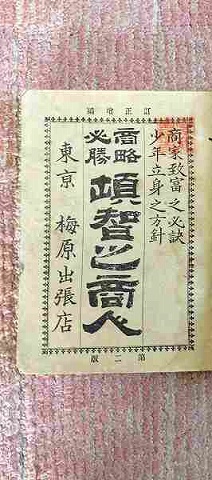 訂正増補
商家致富之必訣
少年立身之方針
商略
必勝
頓智之商人
東京 梅原出張店
第二版